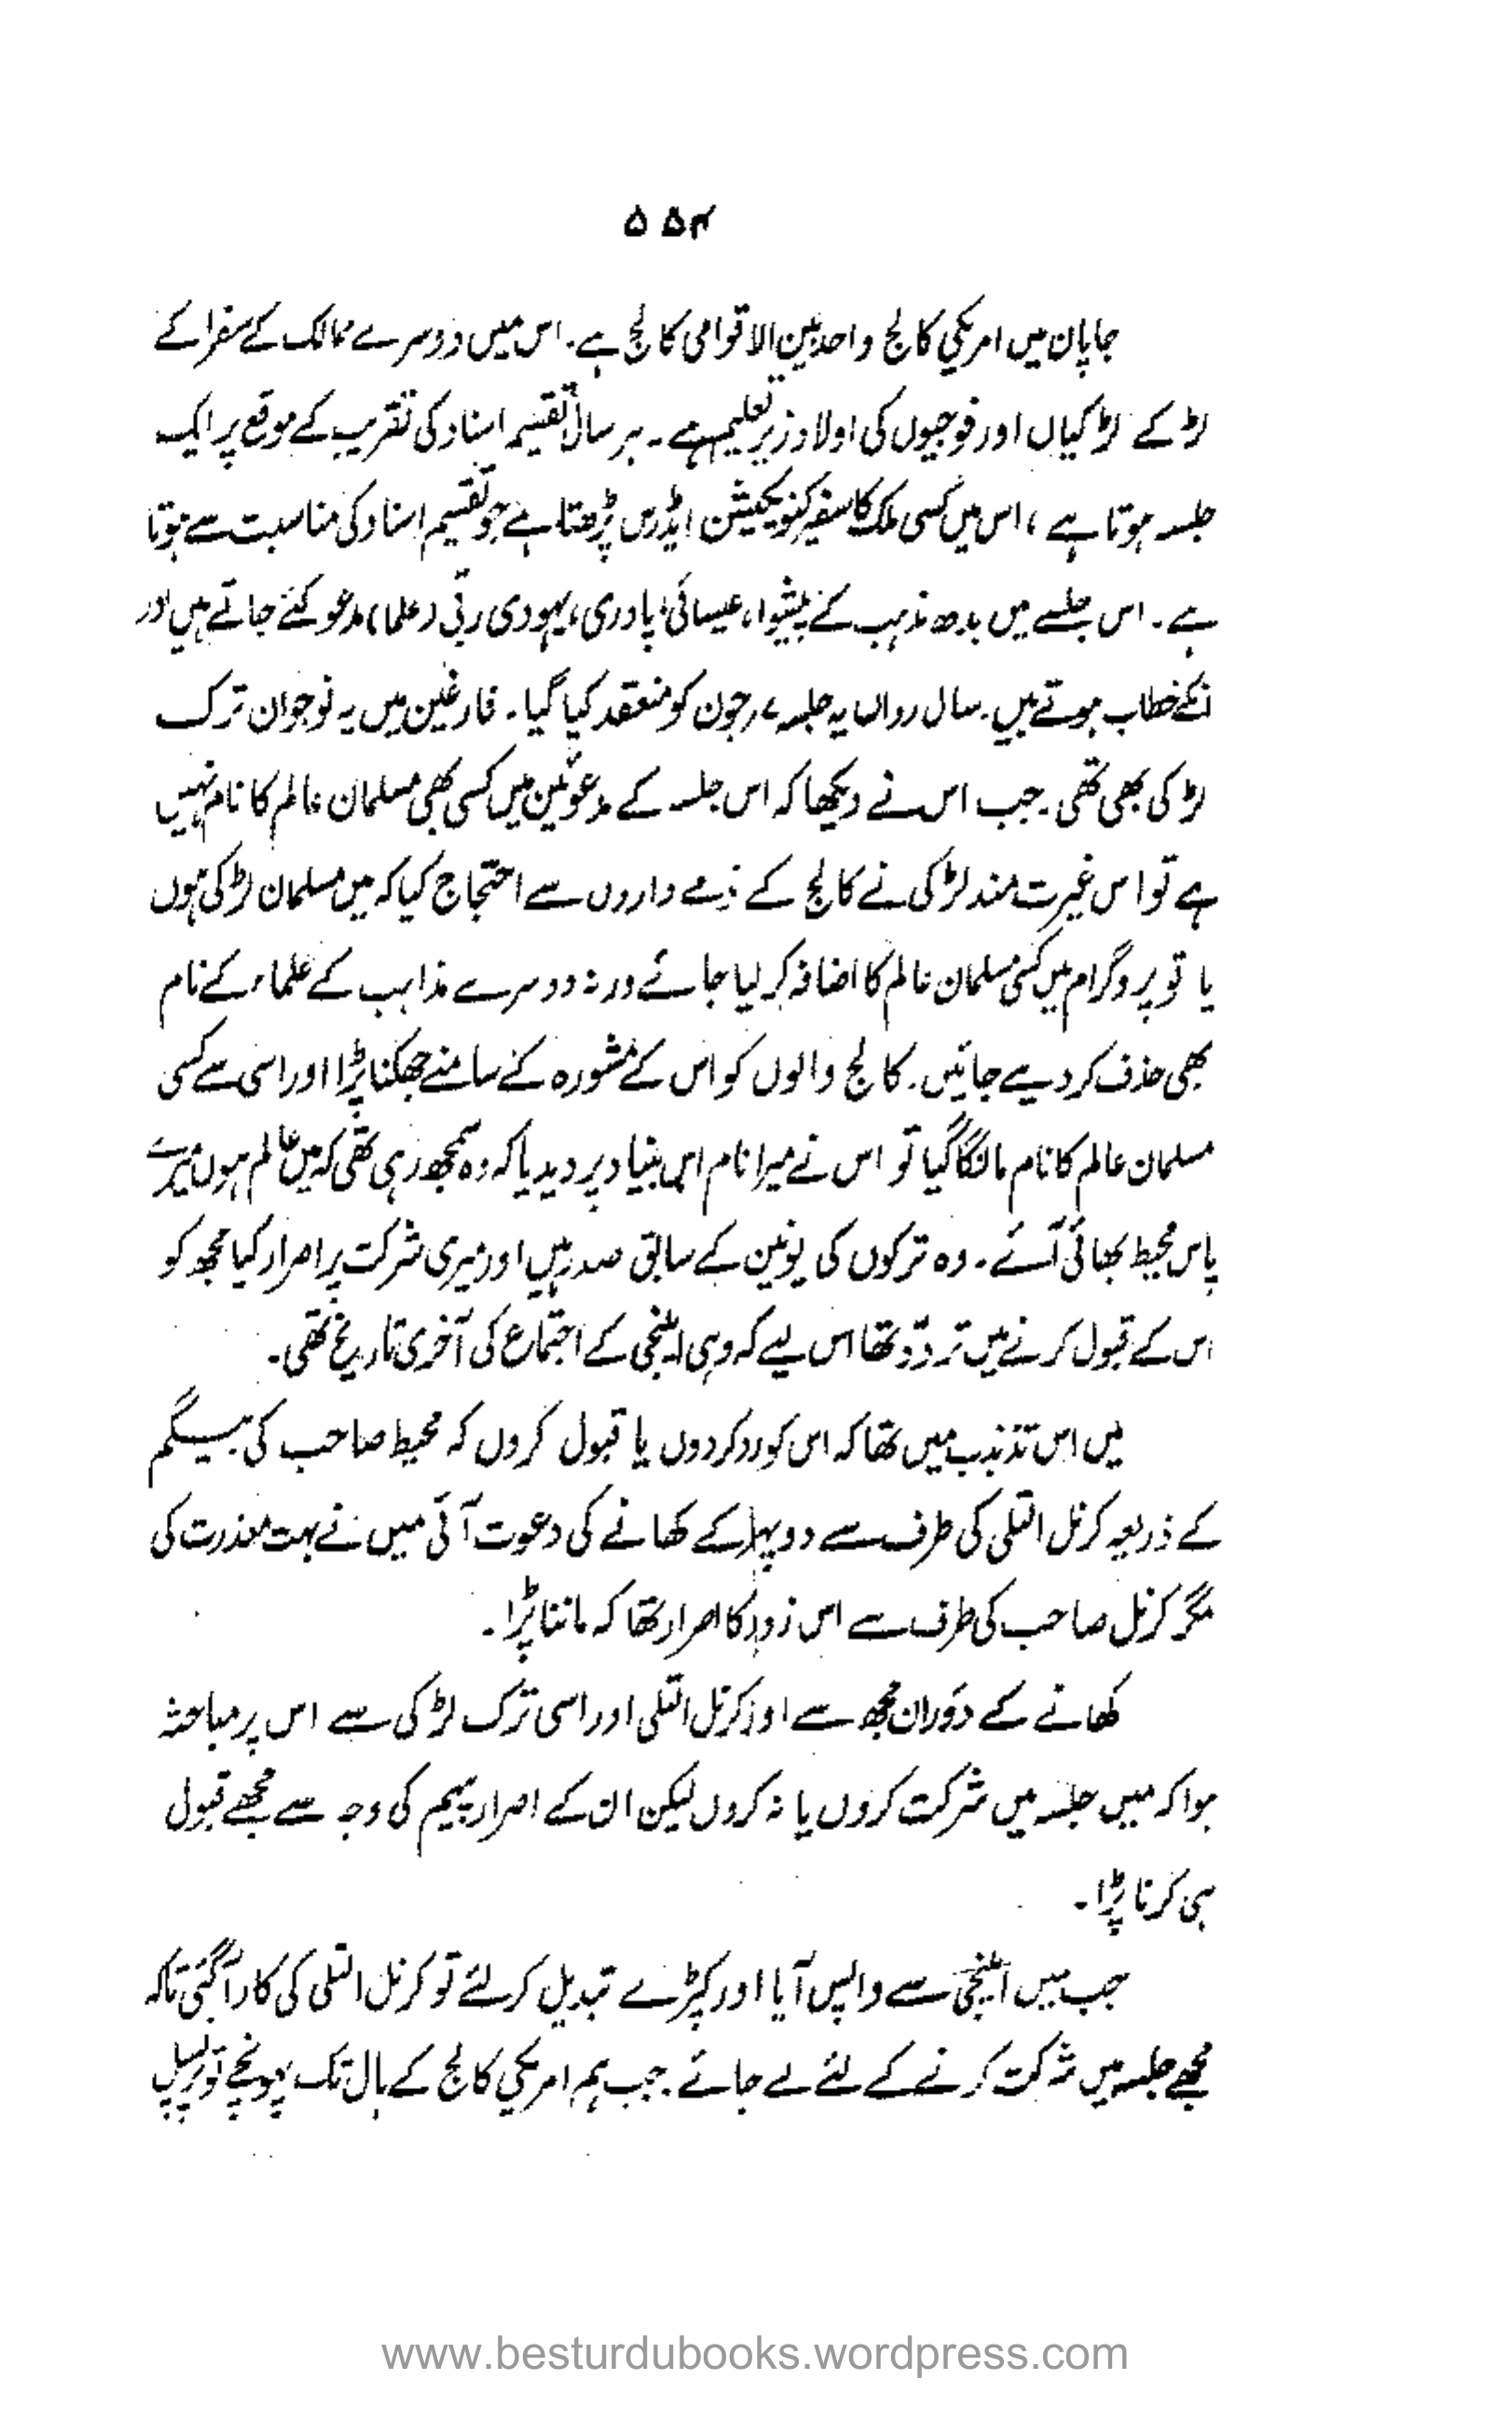 ۵۵۴
جاپان میں امریکی کالج واحد بین الاقوامی کالج ہے۔ اس میں دوسرے ممالک کے سفرا کے
لڑکے لڑکیاں اور فوجیوں کی اولاد زیر تعلیم ہے۔ ہر سال تقسیم اسناد کی تقریب کے موقع پر ایک
جلسہ ہوتا ہے، اس میں کسی ملک کا سفیر کنویکیشن ایڈریس پڑھتا ہے جو تقسیم اسناد کی مناسبت سے ہوتا
ہے۔ اس جلسے میں بدھ مذہب کے پیشوا، عیسائی پادری، یہودی ربی (علما) مدعو کئے جاتے ہیں اور
انکے خطاب ہوتے ہیں۔ سال رواں یہ جلسہ ۷؍جون کو منعقد کیا گیا۔ فارغین میں یہ نوجوان ترک
لڑکی بھی تھی۔ جب اس نے دیکھا کہ اس جلسہ کے مدعوئین میں کسی بھی مسلمان عالم کا نام نہیں
ہے تو اس غیرت مند لڑکی نے کالج کے ذمے داروں سے احتجاج کیا کہ میں مسلمان لڑکی ہوں
یا تو پروگرام میں کسی مسلمان عالم کا اضافہ کر لیا جائے ورنہ دوسرے مذاہب کے علماء کے نام
بھی حذف کر دیے جائیں۔ کالج والوں کو اس کے مشورہ کے سامنے جھکنا پڑا اور اسی سے کسی
مسلمان عالم کا نام مانگا گیا تو اس نے میرا نام اس بنیاد پر دیدیا کہ وہ سمجھ رہی تھی کہ میں عالم ہوں میرے
پاس محیط بھائی آئے۔ وہ ترکوں کی یونین کے سابق صدر ہیں اور میری شرکت پر اصرار کیا مجھ کو
اس کے قبول کرنے میں تردد تھا اس لیے کہ وہی ایٹنجی کے اجتماع کی آخری تاریخ تھی۔
میں اس تذبذب میں تھا کہ اس کو رد کر دوں یا قبول کروں کہ محیط صاحب کی بیگم
کے ذریعہ کرنل اتلی کی طرف سے دوپہر کے کھانے کی دعوت آئی میں نے بہت معذرت کی
مگر کرنل صاحب کی طرف سے اس زور کا اصرار تھا کہ ماننا پڑا۔
کھانے کے دوران مجھ سے اور کرنل اتلی اور اسی ترک لڑکی سے اس پر مباحثہ
ہوا کہ میں جلسہ میں شرکت کروں یا نہ کروں لیکن ان کے اصرار پیہم کی وجہ سے مجھے قبول
ہی کرنا پڑا۔
جب میں ایٹنجی سے واپس آیا اور کپڑے تبدیل کر لئے تو کرنل اتلی کی کار آگئی تاکہ
مجھے جلسہ میں شرکت کرنے کے لئے لے جائے۔ جب ہم امریکی کالج کے ہال تک پہونچے تو پرنسپل
www.besturdubooks.wordpress.com